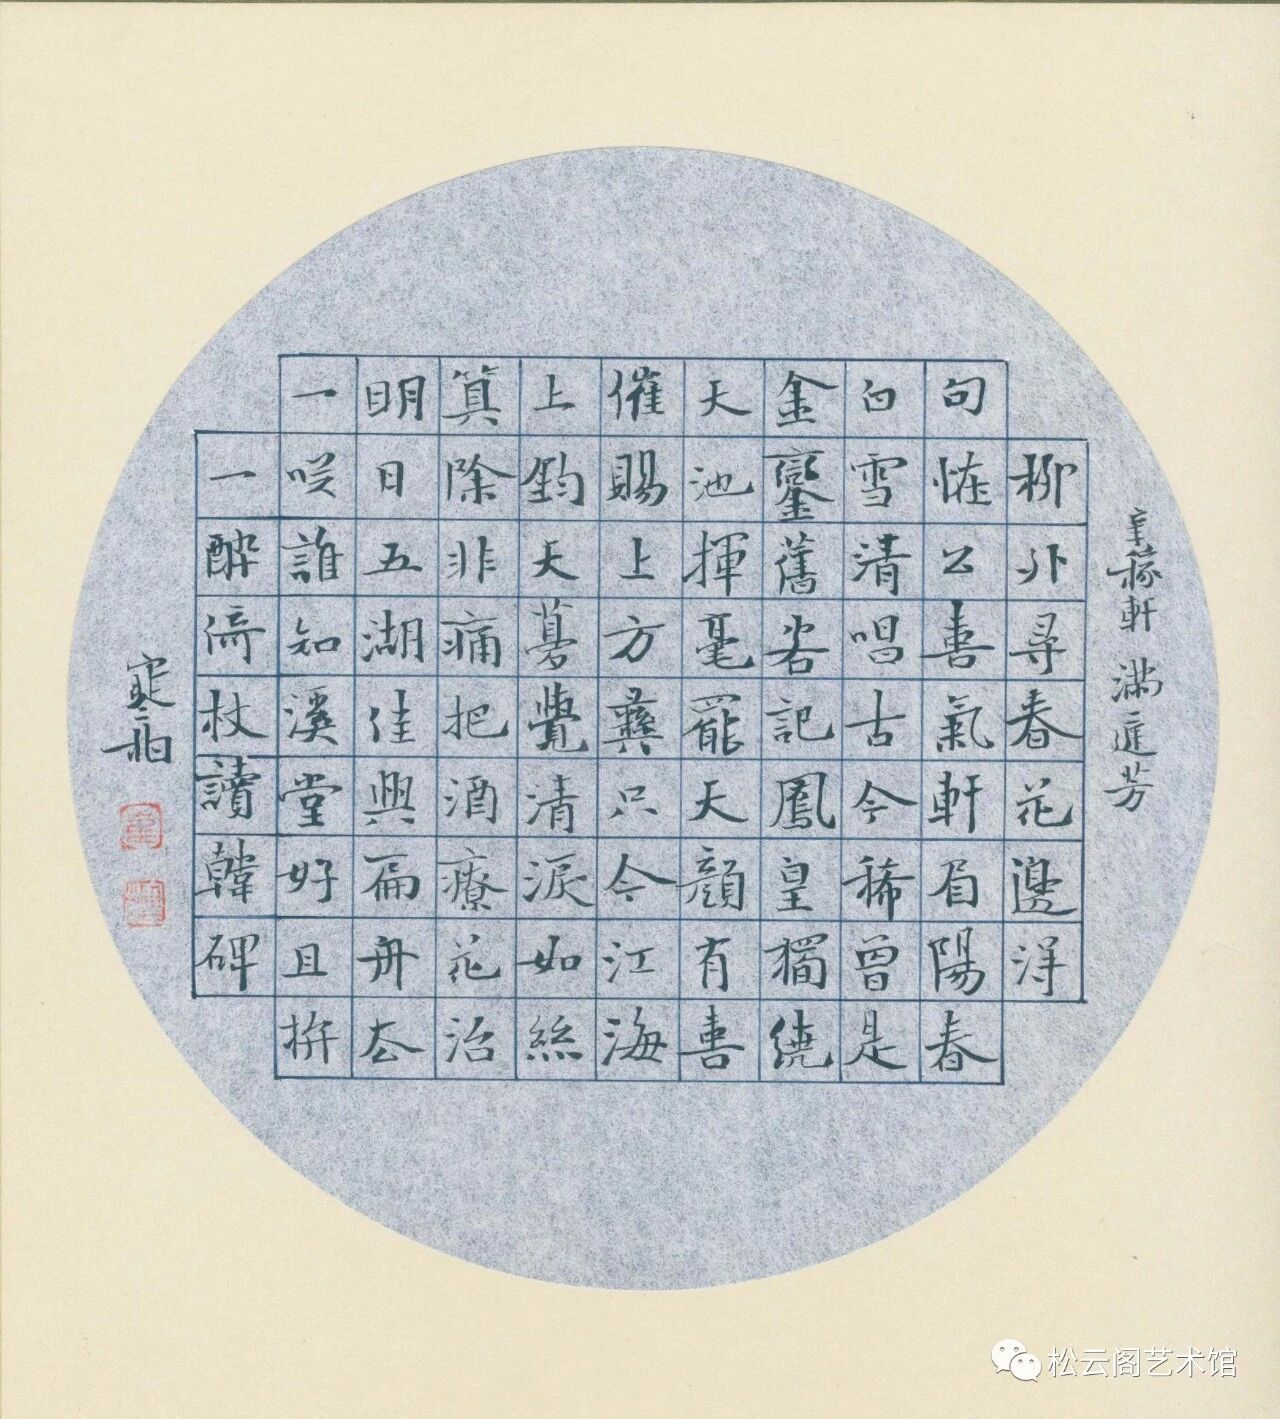 辛稼軒 滿庭芳
柳外尋春花邊得
句恠公喜氣軒眉陽春
白雪清唱古今稀曾是
金鑾舊客記鳳皇獨繞
天池揮毫罷天顏有喜
催賜上方彝只今江海
上鈞天夢覺清淚如絲
算除非痛把酒療花治
眀日五湖佳興扁舟去
一咲誰知溪堂好且拚
一醉倚杖讀韓碑
松云阁艺术馆